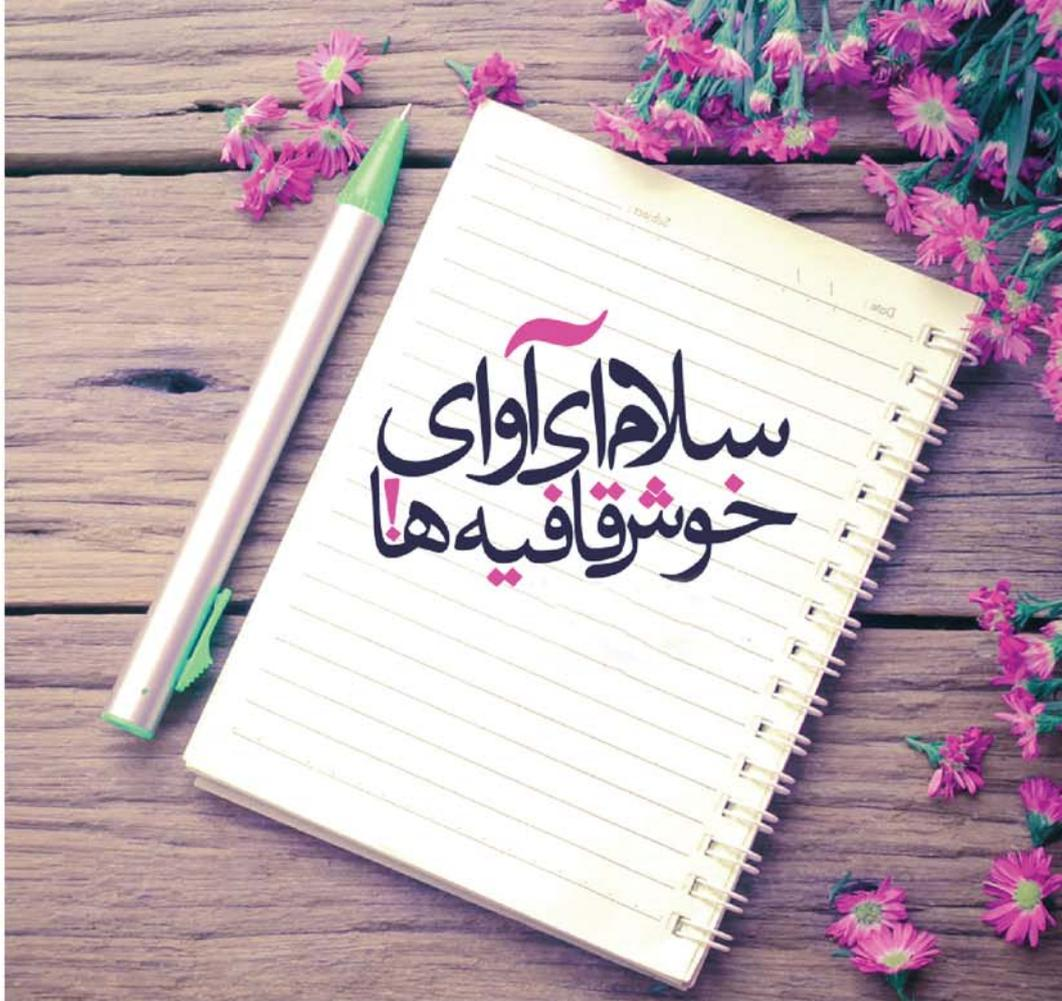 Subject:
Date:
سلام ای آوای
خوش قافیه ها!